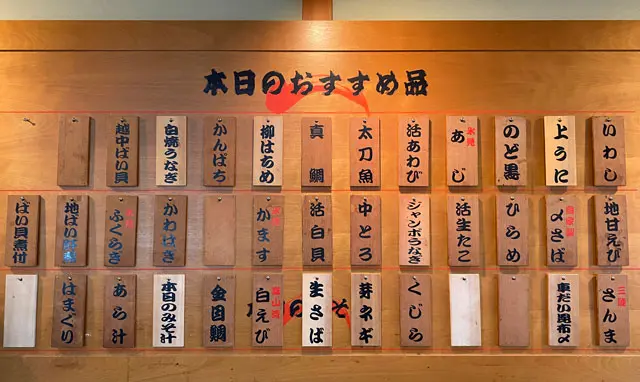 本日のおすすめ品
いわし
上うに
のど黒
氷見
あじ
活あわび
太刀魚
真鯛
柳はちめ
かんぱち
白焼うなぎ
越中ばい貝
地甘えび
自家製
〆さば
ひらめ
活生たこ
ジャンボうなぎ
中とろ
活白貝
かます
かわはぎ
ふくらぎ
ばい貝煮付
三陸
さんま
車だい昆布〆
くじら
芽ネギ
生さば
富山湾
白えび
金目鯛
本日のみそ汁
あら汁
はまぐり